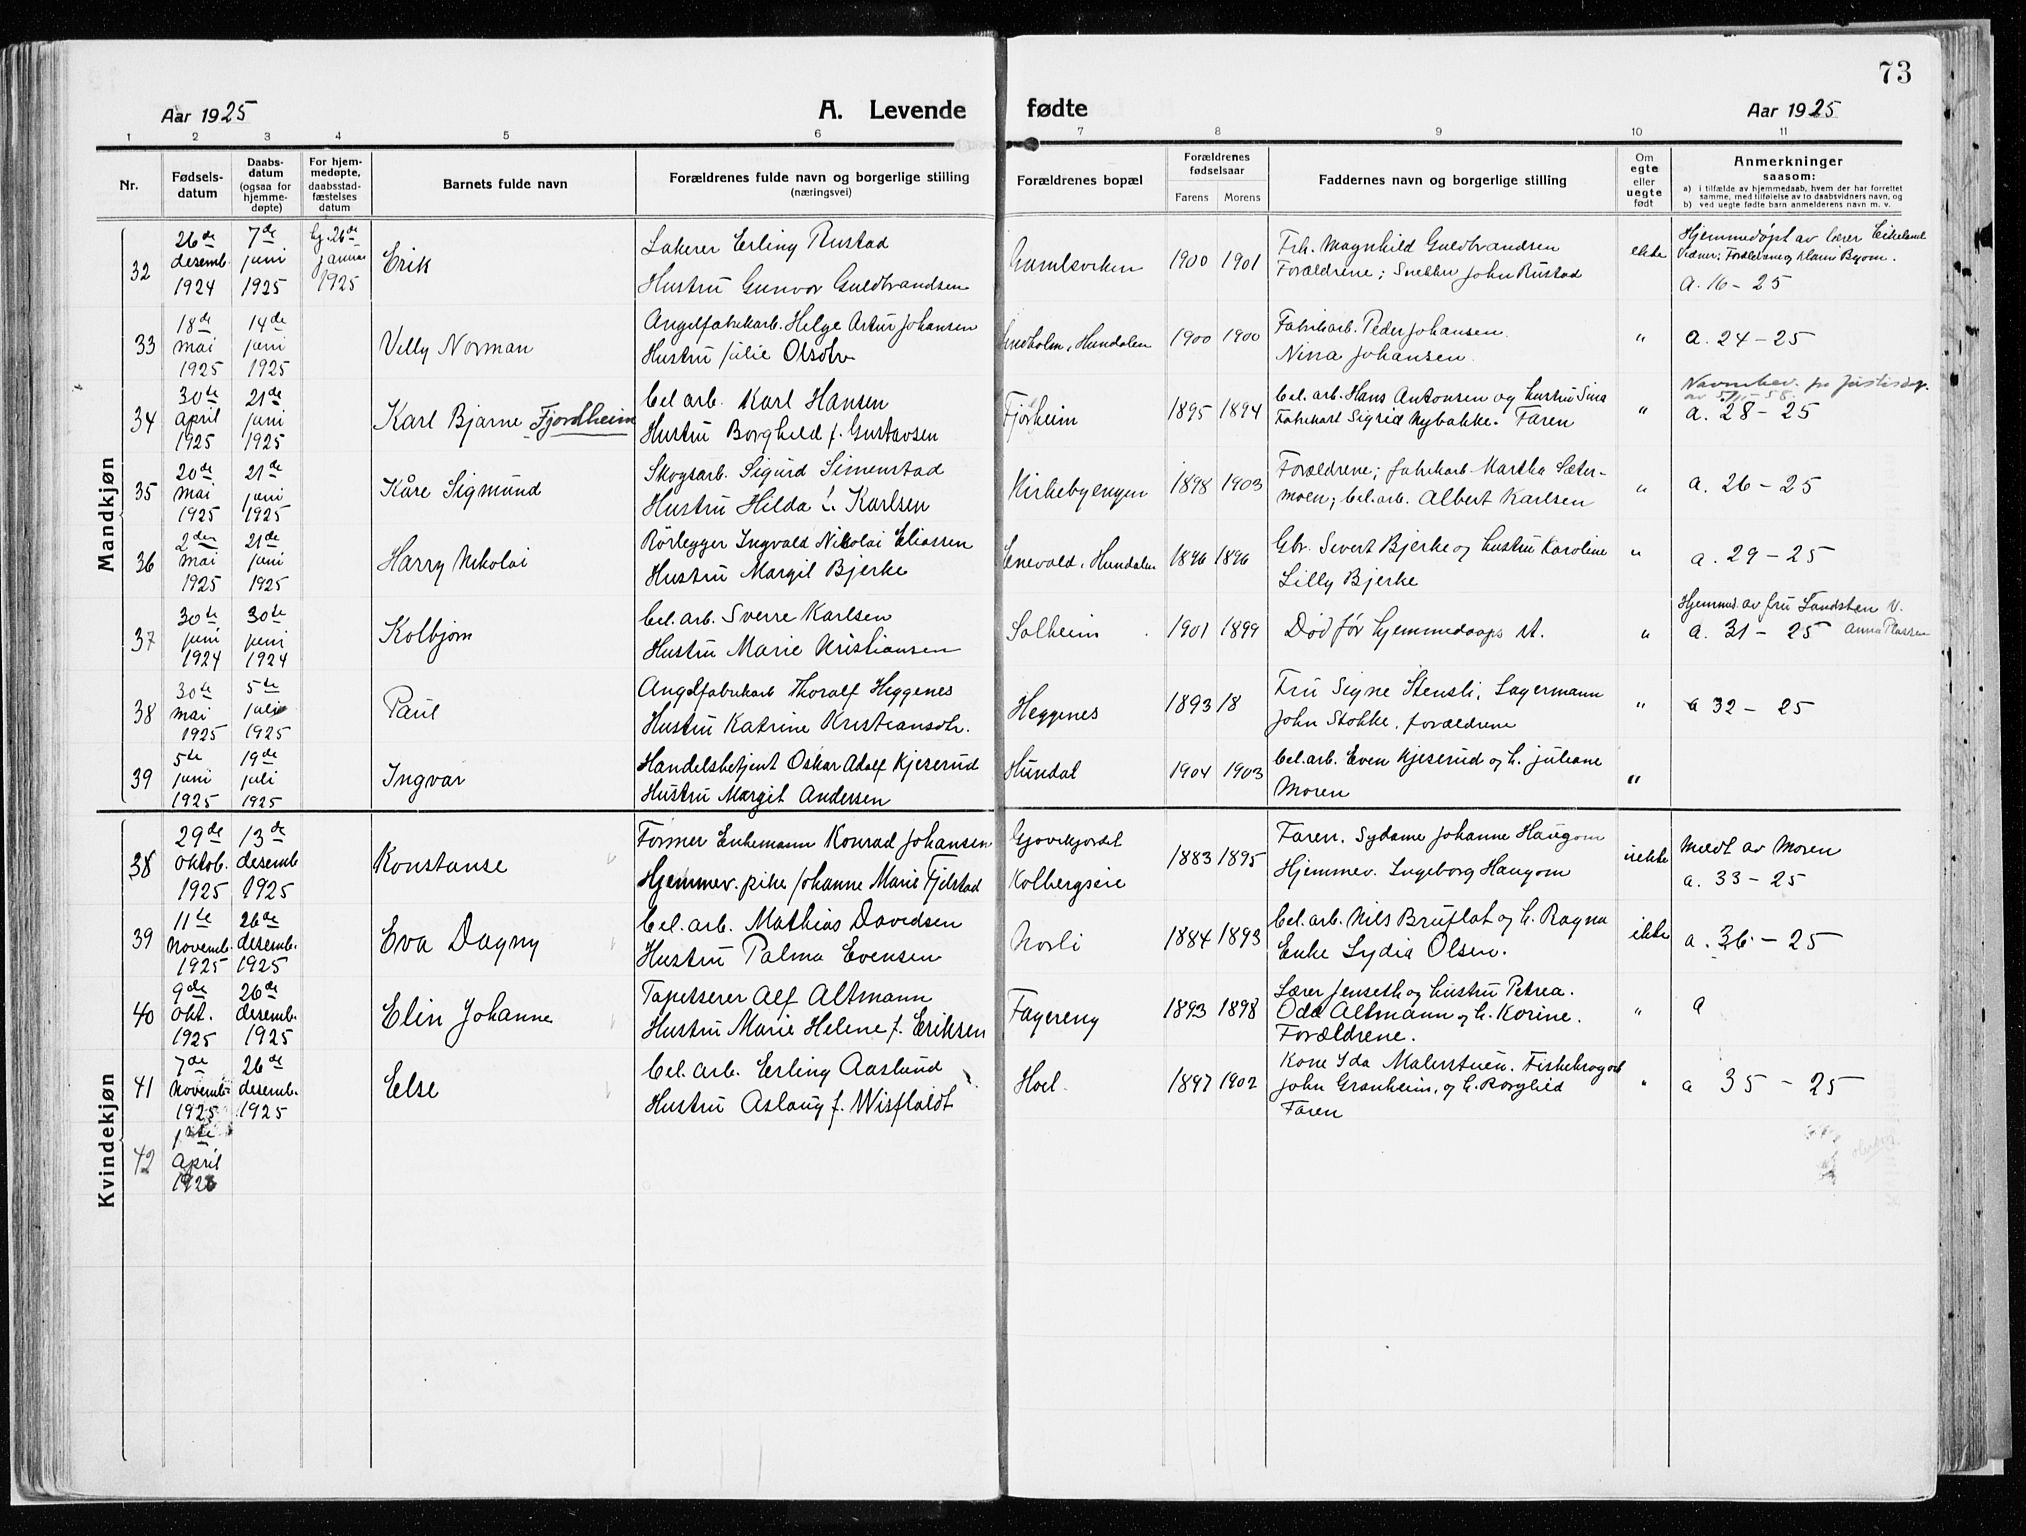 73
Aar 1925 A. Levende fødte Aar 1925
1 2 3 4 5 6 7 8 9 10 11
Nr. Fødsels-datum Daabs-datum (ogsaa for hjemme-døpte) For hjem-medøpte, daabsstad-fæstelses datum Barnets fulde navn Forældrenes fulde navn og borgerlige stilling (næringsvei) Forældrenes bopæl Forældrenes fødselsaar Farens Morens Faddernes navn og borgerlige stilling Om egte eller uegte født Anmerkninger saasom:
a) i tilfælde av hjemmedaab, hvem der har forrettet samme, med tilføielse av to daabsvidners navn, og
b) ved uegte fødte barn anmelderens navn m. v.
Mandkjøn
32 26de desemb. 1924 7de juni 1925 26de januar 1925 Erik
Lakerer Erling Rustad
Hustru Gunvor Guldbrandsen
1900 1901
Frk. Magnhild Guldbrandsen
Forældrene; Snekker John Rustad
ekte
Hjemmedøpt av lærer Eikeland
a. 16 - 25
33 18de mai 1925 14de juni 1925 Villy Norman
Angelfabrikarb. Helge Artur Johansen
Hustru Julie Olsdtr
Hundalen 1900 1900
Fabrikarb. Peder Johansen.
Nina Johansen.
"
a. 24 - 25
34 30te April 1925 21de juni 1925 Karl Bjarne Fjordheim
Cel arb. Karl Hansen
Hustru Borghild f. Gustavsen
Fjorheim 1895 1894
Cel. arb. Hans Antonsen og hustru Sina
Fabrikarb Sigrid Nybakke. Faren
"
Navnebev. fra Justisdep.
a. 28 - 25
35 20de mai 1925 21de juni 1925 Kåre Sigmund
Skogsarb. Sigurd Simenstad
Hustru Hilda f. Karlsen
Kirkebyengen 1898 1903
Forældrene; fabrikarb. Martha Sæter-
moen; Cel. arb. Albert Karlsen
"
a. 26 - 25
36 2den mai 1925 21de juni 1925 Harry Nikolai
Rørlegger Ingvald Nikolai Eliassen
Hustru Margit Bjerke
Enevold, Hundalen 1896 1896
Gbr. Severt Bjerke og hustru Karoline
Lilly Bjerke
"
a. 29 - 25
37 30te juni 1924 30te juni 1924 Kolbjørn
Cel. arb. Sverre Karlsen
Hustru Marie Kristiansen
Solheim 1901 1899
Død før hjemmedaaps st.
"
Hjemmed. av fru Sandsten V.
a. 31 - 25 Anna
38 30te mai 1925 5te juli 1925 Paul
Angelfabrikarb Thoralf Heggenes
Hustru Katrine Kristiansdtr.
Heggenes 1893 18
Fru Signe Stensli, Lagermann
John Stokke, forældrene
"
a 32 - 25
39 5te juni 1925 19de juli 1925 Ingvar
Handelsbetjent Oskar Adolf Kjeserud
Hustru Margit Andersen
Hundal 1904 1903
Cel. arb. Even Kjeserud og h. Juliane
Moren
"
Kvindekjøn
38 29de oktob. 1925 13de desemb 1925 Konstanse
Former Enkemann Konrad Johansen
Hjemmev. pike Johanne Marie Fjelstad
Gjøvikjordet
Kolbergseie
1883 1895
Faren. Sydame Johanne Haugom
Hjemmev. Ingeborg Haugom
uekte
Meldt av Moren
a. 33 - 25
39 11te Novemb. 1925 26de desemb. 1925 Eva Dagny
Cel. arb. Mathias Davidsen
Hustru Palma Evensen
Norli 1884 1893
Cel. arb. Nils Bruflat og h. Ragna
Enke Lydia Olsen.
ekte
a. 36 - 25
40 9de Okt. 1925 26de desemb. 1925 Elin Johanne
Tapetserer Alf Altmann
Hustru Marie Helene f. Eriksen
Fagereng 1893 1898
Lærer Jenseth og hustru Petrea.
Odd Altmann og h. Korine.
Forældrene.
"
a
41 7de Novemb. 1925 26de desemb. 1925 Else
Cel. arb. Erling Aaslund
Hustru Aslaug f. Wisfladt
Hoel. 1897 1902
Kone Ida Malerstuen.
John Granheim, og h. Borghild
Faren
"
a 35 - 25
42 1ste April